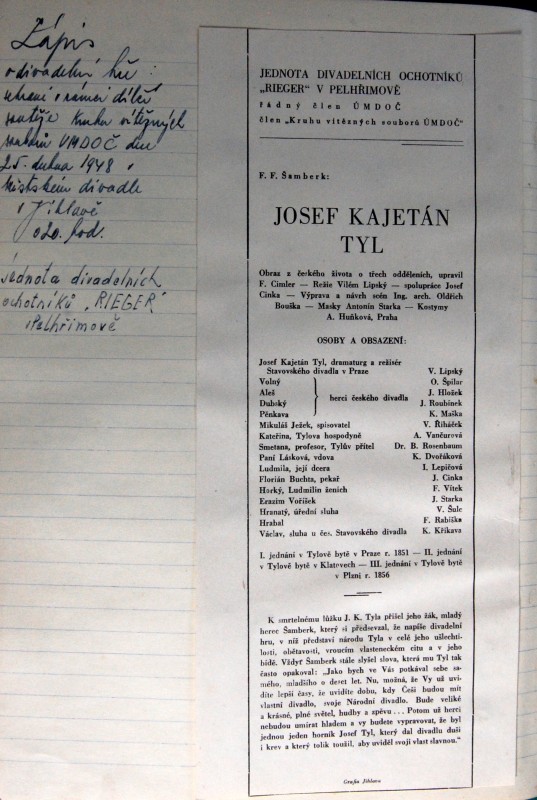 Zápis
o divadelní hře:
sehrané v rámci dílčí
soutěže Kruhu vítězných
souborů ÚMDOČ dne
25. dubna 1948 v
městském divadle
v Jihlavě
o 20. hod.
Jednota divadelních
ochotníků "RIEGER"
v Pelhřimově
JEDNOTA DIVADELNÍCH OCHOTNÍKŮ
„RIEGER" V PELHŘIMOVĚ
řádný člen ÚMDOČ
člen „Kruhu vítězných souborů ÚMDOČ"
F. F. Šamberk:
JOSEF KAJETÁN
TYL
Obraz z českého života o třech odděleních, upravil
F. Cimler — Režie Vilém Lipský — spolupráce Josef
Cinka — Výprava a návrh scén Ing. arch. Oldřich
Bouška — Masky Antonín Starka — Kostymy
A. Huňková, Praha
OSOBY A OBSAZENÍ:
Josef Kajetán Tyl, dramaturg a režisér
Stavovského divadla v Praze V. Lipský
Volný O. Špilar
Aleš J. Hložek
herci českého divadla
Dubský J. Roubínek
Pěnkava K. Maška
Mikuláš Ježek, spisovatel V. Řiháček
Kateřina, Tylova hospodyně A. Vančurová
Smetana, profesor, Tylův přítel Dr. B. Rosenbaum
Paní Lásková, vdova K. Dvořáková
Ludmila, její dcera I. Lepičová
Florián Buchta, pekař J. Cinka
Horký, Ludmilin ženich F. Vítek
Erazim Voříšek J. Starka
Hranatý, úřední sluha V. Šule
Hrabal F. Rabiška
Václav, sluha u čes. Stavovského divadla K. Křikava
I. jednání v Tylově bytě v Praze r. 1851 — II. jednání
v Tylově bytě v Klatovech — III. jednání v Tylově bytě
v Plzni r. 1856
K smrtelnému lůžku J. K. Tyla přišel jeho žák, mladý
herec Šamberk, který si předsevzal, že napíše divadelní
hru, v níž představí národu Tyla v celé jeho ušlechti-
losti, obětavosti, vroucím vlasteneckém citu a v jeho
bídě. Vždyť Šamberk stále slyšel slova, která mu Tyl tak
často opakoval: „Jako bych ve Vás potkával sebe sa-
mého, mladšího o deset let. Nu, možná, že Vy už uvi-
díte lepší časy, že uvidíte dobu, kdy Češi budou mít
vlastní divadlo, svoje Národní divadlo. Bude veliké
a krásné, plné světel, hudby a zpěvu... Potom už herci
nebudou umírat hladem a vy budete vypravovat, že byl
jednou jeden horník Josef Tyl, který dal divadlu duši
i krev a který tolik toužil, aby uviděl svoji vlast slavnou."
Grafia Jihlava